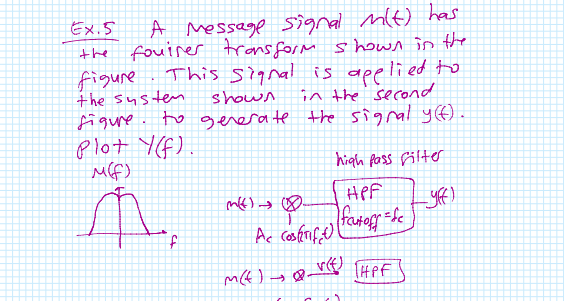 Ex.5 A Message signal m(t) has
the fourier transform shown in the
figure. This signal is applied to
the system shown in the second
figure. to generate the signal y(t).
plot Y(f).
high pass filter
M(f)
f
m(t) → ⊗ HPF y(t)
fcutoff = fc
Ac cos(2πfct)
m(t) → ⊗ v(t) HPF